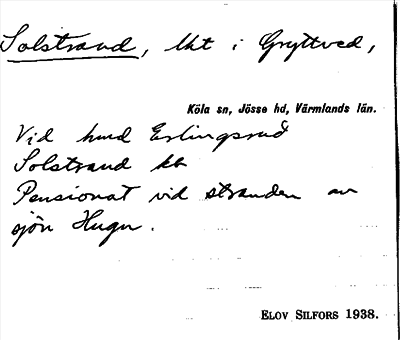 Solstrand, lht i Gryttved,
Köla sn, Jösse hd, Värmlands län.
Vid hmd Erlingsrud
Solstrand kb
Pensionat vid stranden av
sjön Hugn.
ELOV SILFORS 1938.